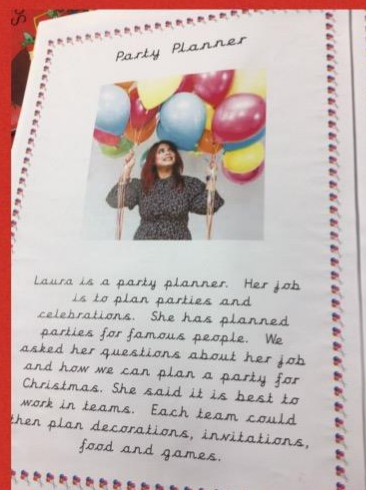 Party Planner
Laura is a party planner. Her job
is to plan parties and
celebrations. She has planned
parties for famous people. We
asked her questions about her job
and how we can plan a party for
Christmas. She said it is best to
work in teams. Each team could
then plan decorations, invitations,
food and games.